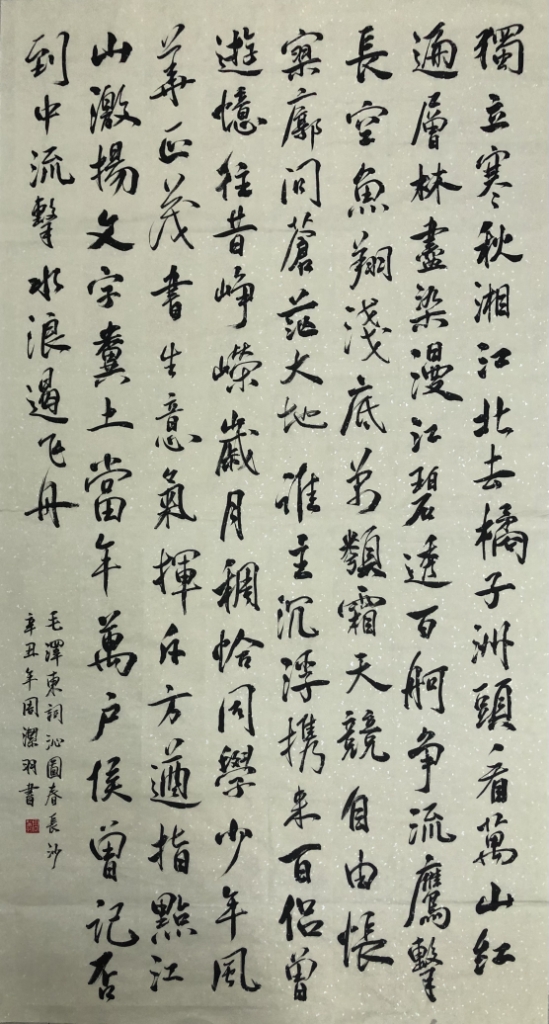 獨立寒秋湘江北去橘子洲頭看萬山红
遍層林盡染漫江碧透百舸争流鷹擊
長空魚翔淺底万類霜天競自由悵
寥廓问蒼茫大地誰主沉浮携来百侣曾
遊憶往昔崢嶸歲月稠恰同學少年風
華正茂書生意氣揮斥方遒指點江
山激揚文字糞土當年萬户侯曾記否
到中流擊水浪遏飞舟
毛澤東詞沁園春長沙
辛丑年周潔羽書